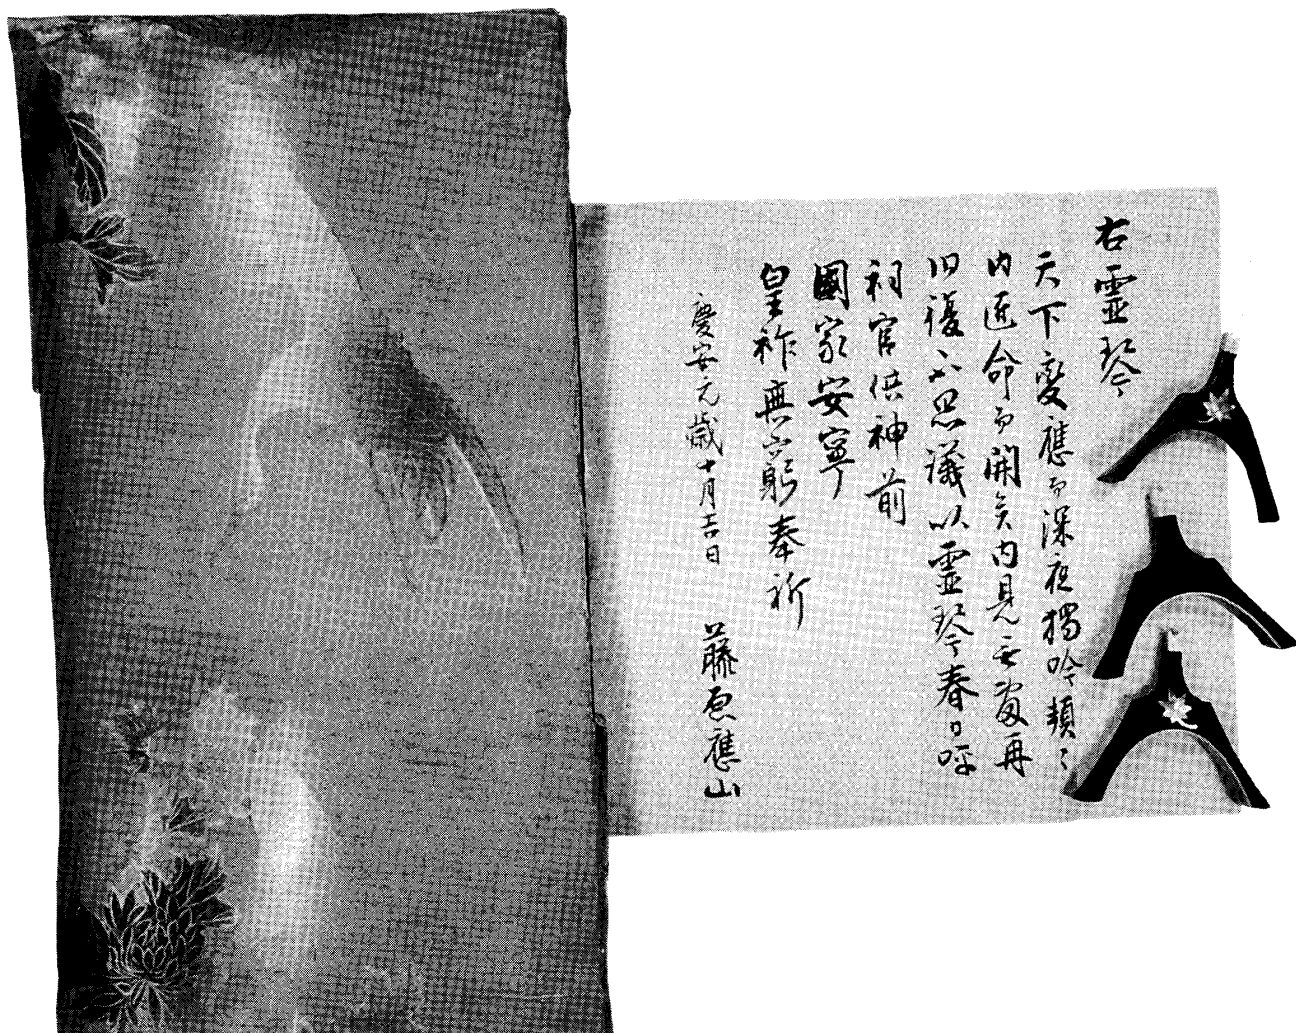 右霊琴
天下変應而深夜獨吟頻々
内匠命而開矣内見無有再
旧複不思議以霊琴春日呼
祠官供神前
國家安寧
皇祚無窮奉祈
慶安元歳十月吉日 藤原應山